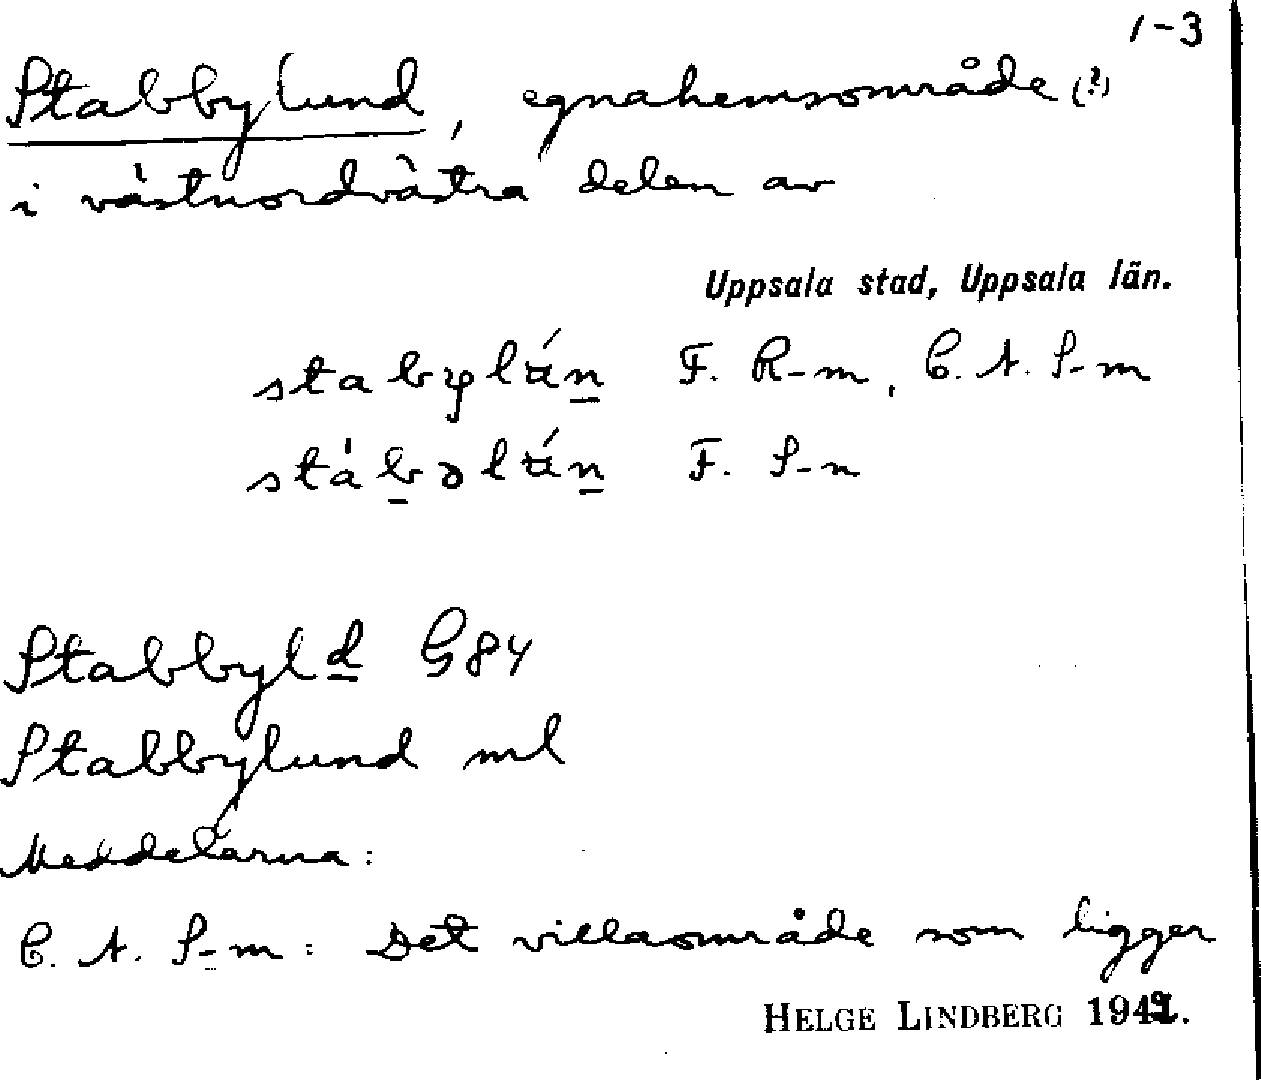 1-3
Stabbylund, egnahemsområde (?)
i västnordvästra delen av
Uppsala stad, Uppsala län.
F. R-m, C. A. S-m
F. S-n
Stabbyld G84
Stabbylund ml
Meddelarna:
C. A. S-m: Det villaområde som ligger
HELGE LINDBERG 194